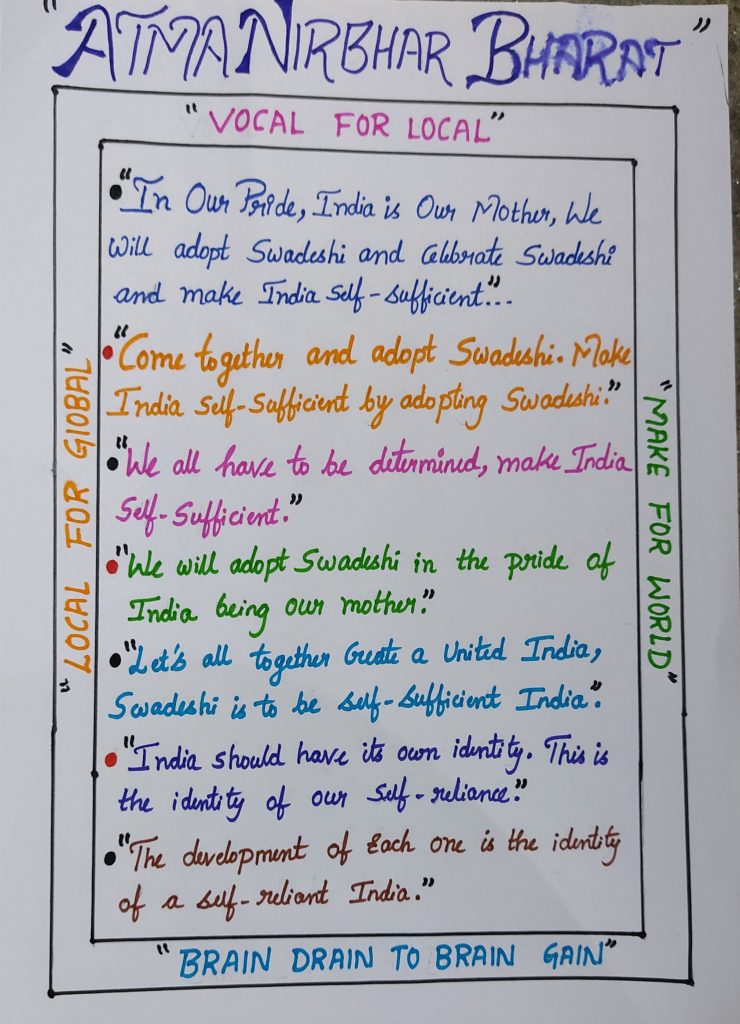 "ATMANIRBHAR BHARAT"
"VOCAL FOR LOCAL"
"LOCAL FOR GlOBAL"
• "In Our Pride, India is Our Mother, We
will adopt Swadeshi and Celebrate Swadeshi
and make India Self-Sufficient"...
• "Come together and adopt Swadeshi. Make
India Self-Sufficient by adopting Swadeshi."
• "We all have to be determined, make India
Self-Sufficient."
• "We will adopt Swadeshi in the pride of
India being our mother."
• "Let's all together Create a United India,
Swadeshi is to be self-Sufficient India."
• "India should have its own identity. This is
the identity of our Self-reliance."
• "The development of Each one is the identity
of a self-reliant India."
"MAKE FOR WORLD"
"BRAIN DRAIN TO BRAIN GAIN"